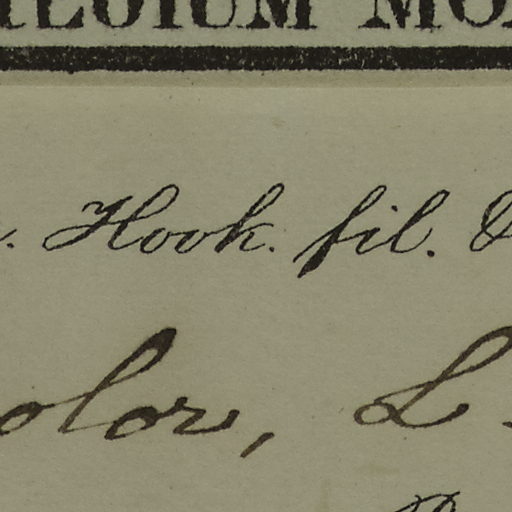 ILEGIUM MO
. Hook. fil. &
olor, L.